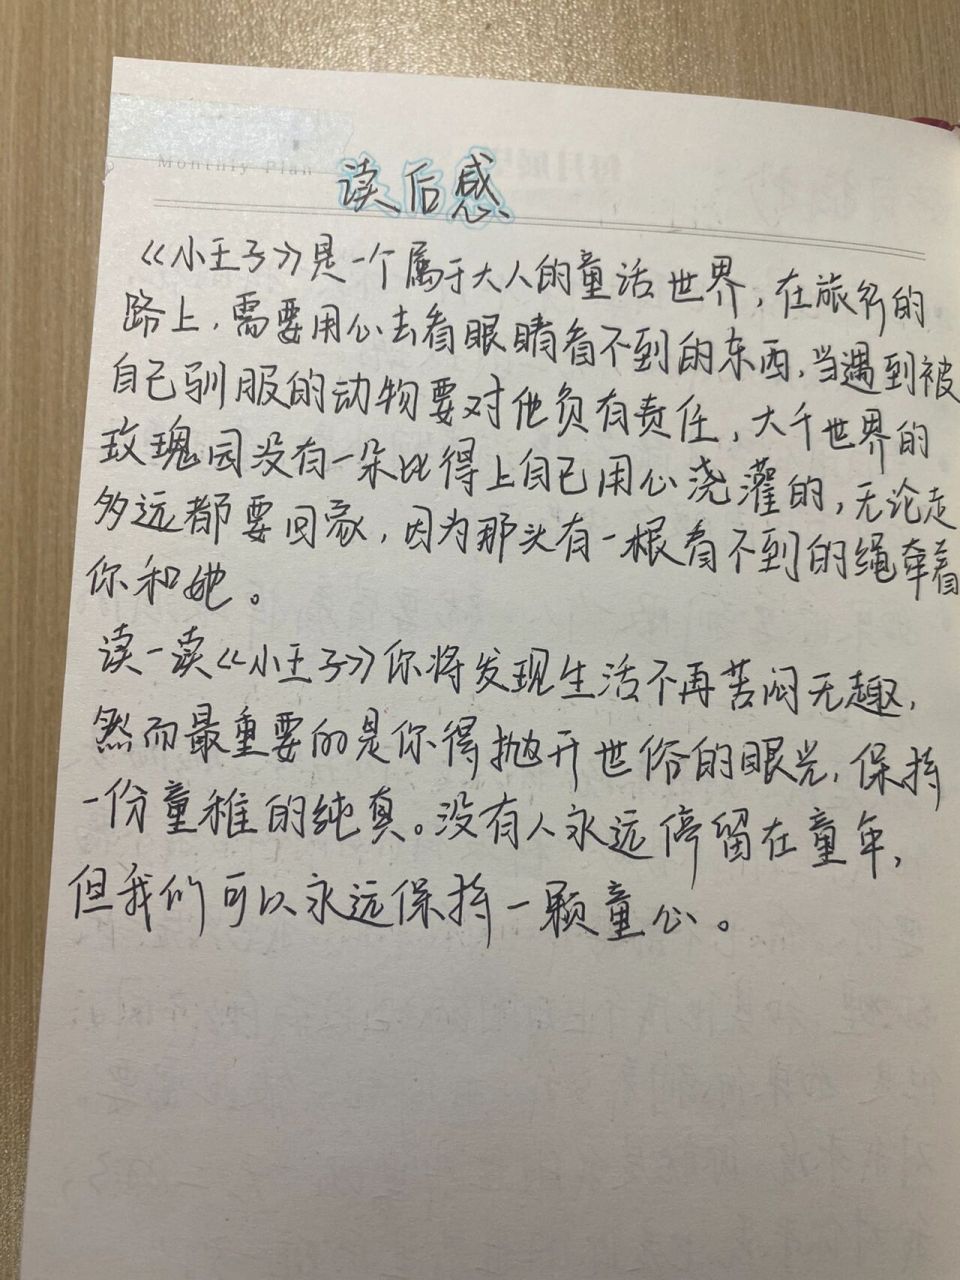 Monthly Plan
读后感
《小王子》是一个属于大人的童话世界，在旅行的
路上，需要用心去看眼睛看不到的东西，当遇到被
自己驯服的动物要对他负有责任，大千世界的
玫瑰园没有一朵比得上自己用心浇灌的，无论走
多远都要回家，因为那头有一根看不到的绳牵着
你和她。
读一读《小王子》你将发现生活不再苦闷无趣，
然而最重要的是你得抛开世俗的眼光，保持
一份童稚的纯真。没有人永远停留在童年，
但我们可以永远保持一颗童心。